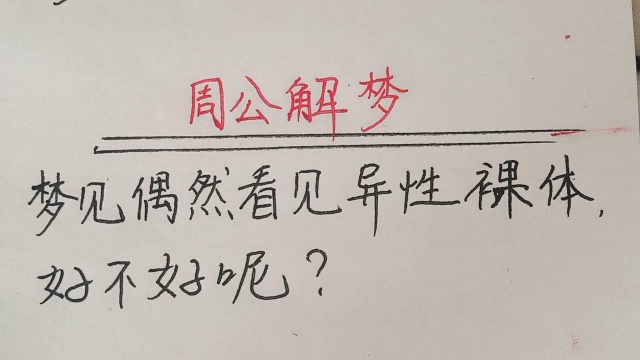 周公解梦
梦见偶然看见异性裸体,
好不好呢?